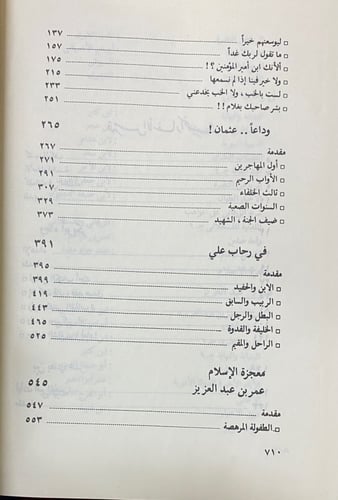 □ ليوسعنهم خيراً ١٣٧
□ ما تقول لربك غداً ١٥٧
□ ألأنك ابن أمير المؤمنين ؟ ! ١٧٥
□ ولا خير فينا إذا لم نسمعها ٢١٥
□ لست بالخب ، ولا الخب يخدعني ٢٣٣
□ بشر صاحبك بغلام ! ! ٢٥١
وداعاً .. عثمان ! ٢٦٥
مقدمة ٢٦٧
□ أول المهاجرين ٢٧١
□ الأواب الرحيم ٢٩١
□ ثالث الخلفاء ٣٠٧
□ السنوات الصعبة ٣٢٩
□ ضيف الجنة ، الشهيد ٣٧٣
في رحاب علي ٣٩١
مقدمة ٣٩٥
□ الابن والحفيد ٣٩٩
□ الربيب والسابق ٤١٩
□ البطل والرجل ٤٤٣
□ الخليفة والقدوة ٤٦٥
□ الراحل والمقيم ٥٢٥
معجزة الإسلام
عمر بن عبد العزيز ٥٤٥
مقدمة ٥٤٧
□ الطفولة المرهصة ٥٥٣
٧١٠